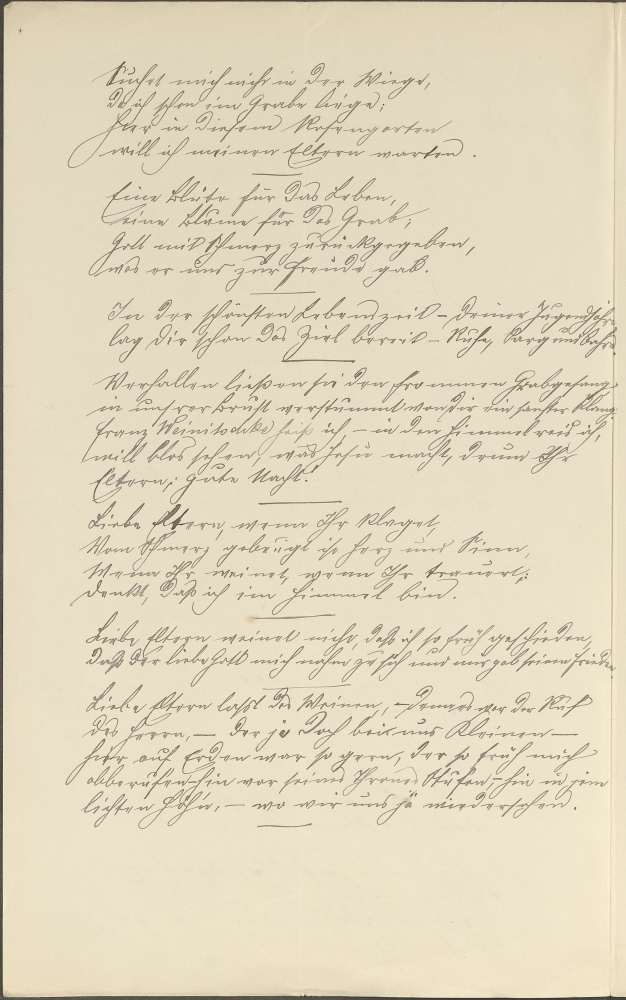 Suchet mich nicht in der Wiege,
da ich schon im Grabe liege;
hier in diesem Rosengarten
will ich meinen Eltern warten.
Eine Blüte für das Leben,
eine Blume für das Grab;
Gott mit Schmerz zurückgegeben,
was er uns zur Freude gab.
In der schönsten Lebenszeit – Deiner Jugendjahre
lag dir schon das Ziel bereit – Ruhe, Sarg und Bahre.
Verhallen ließen sie den frommen Grabgesang
in unsrer Brust verstummt von dir ein sanfter Klang.
Franz Weinitschke heiß ich, – in den Himmel reis ich,
will blos sehen, was Jesu macht, drum Ihr
Eltern; gute Nacht!
Liebe Eltern, wenn Ihr klaget,
Vom Schmerz gebeugt ist Herz und Sinn,
Wenn Ihr weinet, wenn Ihr trauert;
denkt, daß ich im Himmel bin.
Liebe Eltern weinet nicht, daß ich so früh geschieden,
daß der liebe Gott mich nahm zu sich und mir gab seinen Frieden
Liebe Eltern lasst das Weinen, – war der Ruf
des Herrn, – der ja doch bei uns Kleinen –
hier auf Erden war so gern, der so früh mich
abberufen – hin vor seines Thrones Stufen, – hin in jene
lichten Höhn, – wo wir uns ja wiedersehen.